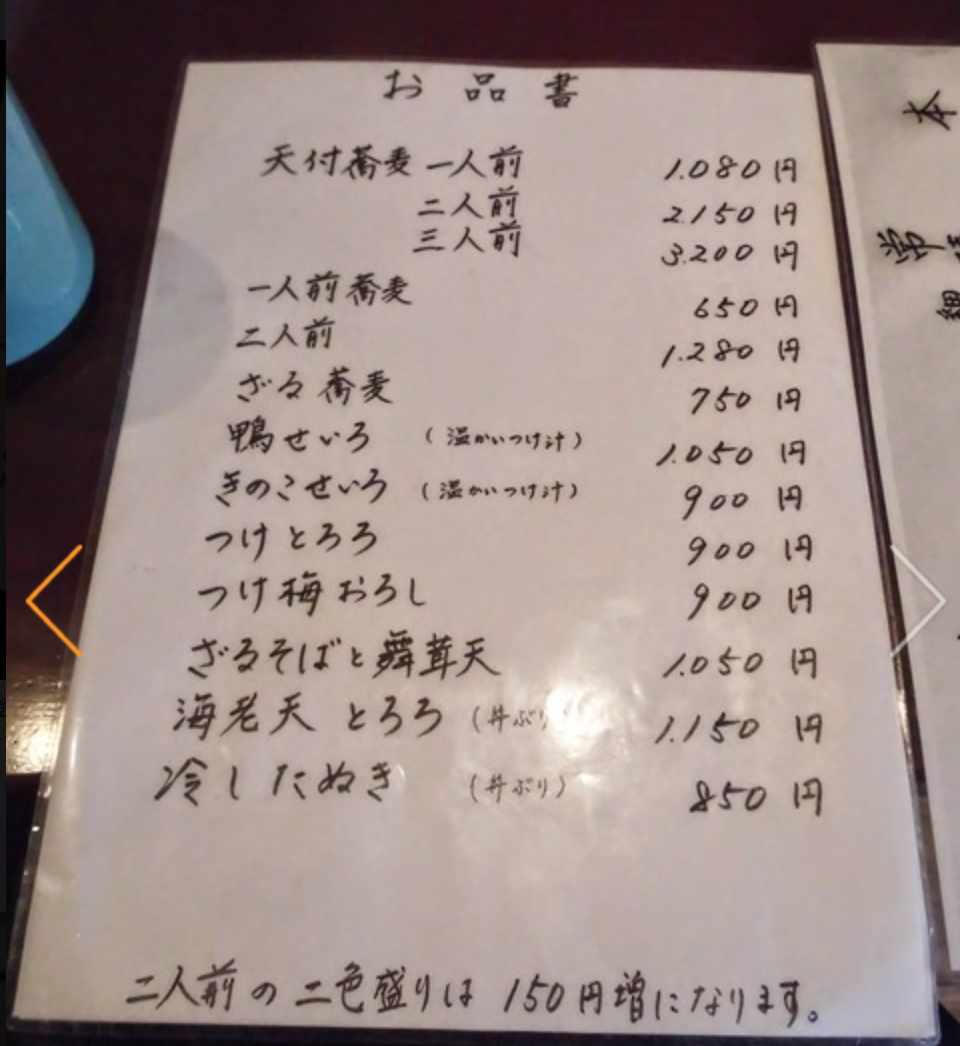 お品書
天付蕎麦 一人前 1.080円
二人前 2.150円
三人前 3.200円
一人前蕎麦 650円
二人前 1.280円
ざる蕎麦 750円
鴨せいろ (温かいつけ汁) 1.050円
きのこせいろ (温かいつけ汁) 900円
つけとろろ 900円
つけ梅おろし 900円
ざるそばと舞茸天 1.050円
海老天とろろ (丼ぶり) 1.150円
冷したぬき (丼ぶり) 850円
二人前の二色盛りは150円増になります。
本
常
細